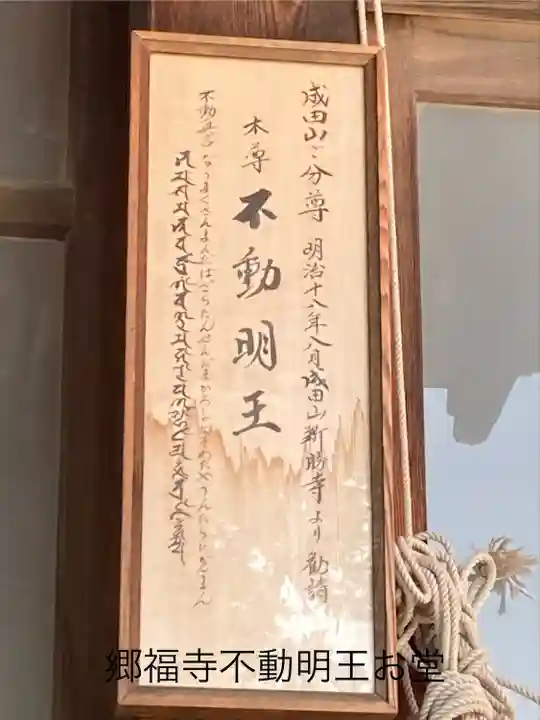 成田山ご分尊 明治十八年八月成田山新勝寺より勧請
本尊 不動明王
不動真言 なうまくさんまんだばざらだんせんだまかろしゃだそわたやうんたらたかんまん
郷福寺不動明王お堂